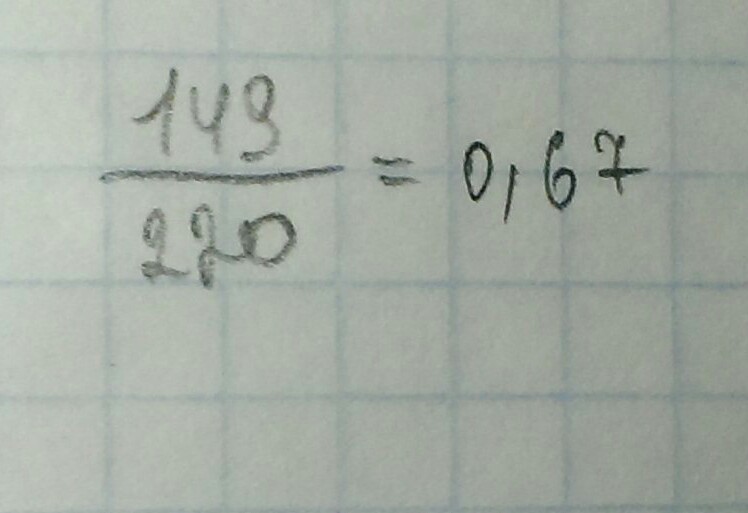 149/220 = 0,67